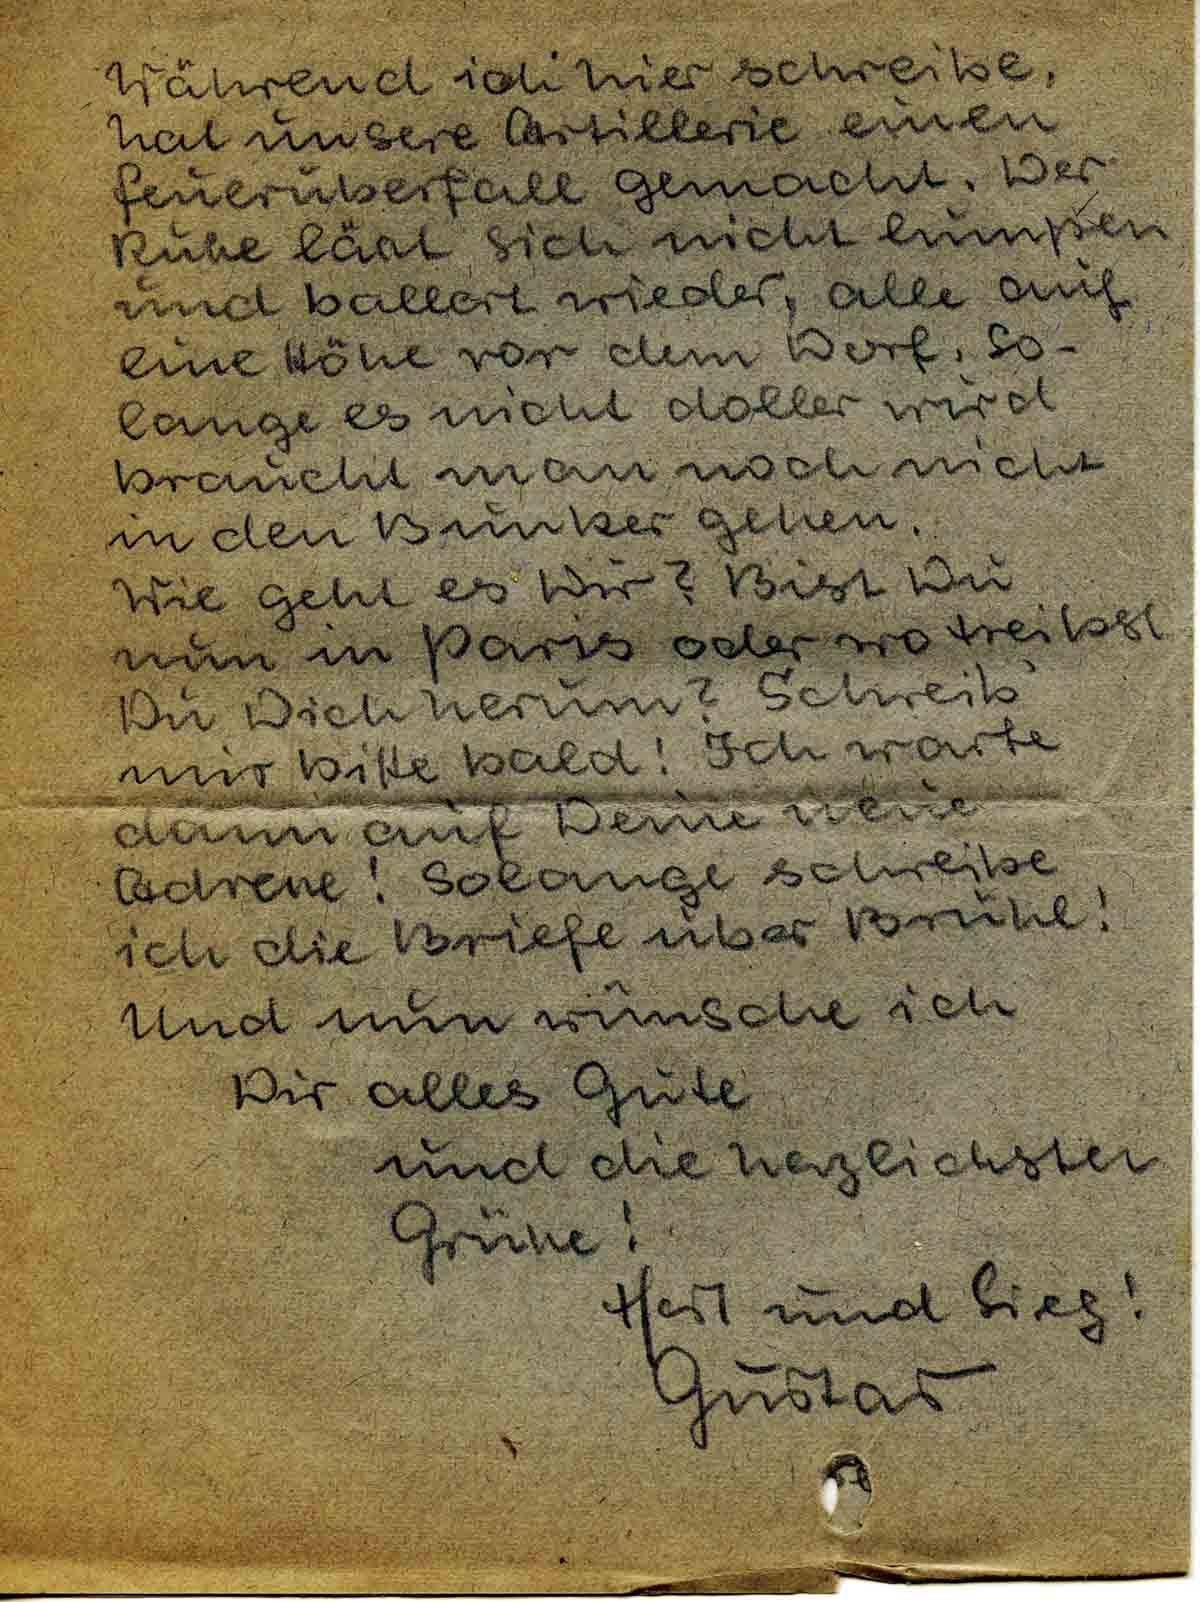 Während ich hier schreibe,
hat unsere Artillerie einen
Feuerüberfall gemacht. Der
läßt sich nicht lumpen
und ballert wieder, alle auf
eine Höhe vor dem Dorf. So-
lange es nicht doller wird
braucht man noch nicht
in den Bunker gehen.
Wie geht es Dir? Bist Du
nun in Paris oder wo treibst
Du Dich herum? Schreib'
mir bitte bald! Ich warte
dann auf Deine neue
Adreße! Solange schreibe
ich die Briefe über Brühl!
Und nun wünsche ich
Dir alles Gute
und die herzlichsten
Grüße!
Heil und Sieg!
Gustav